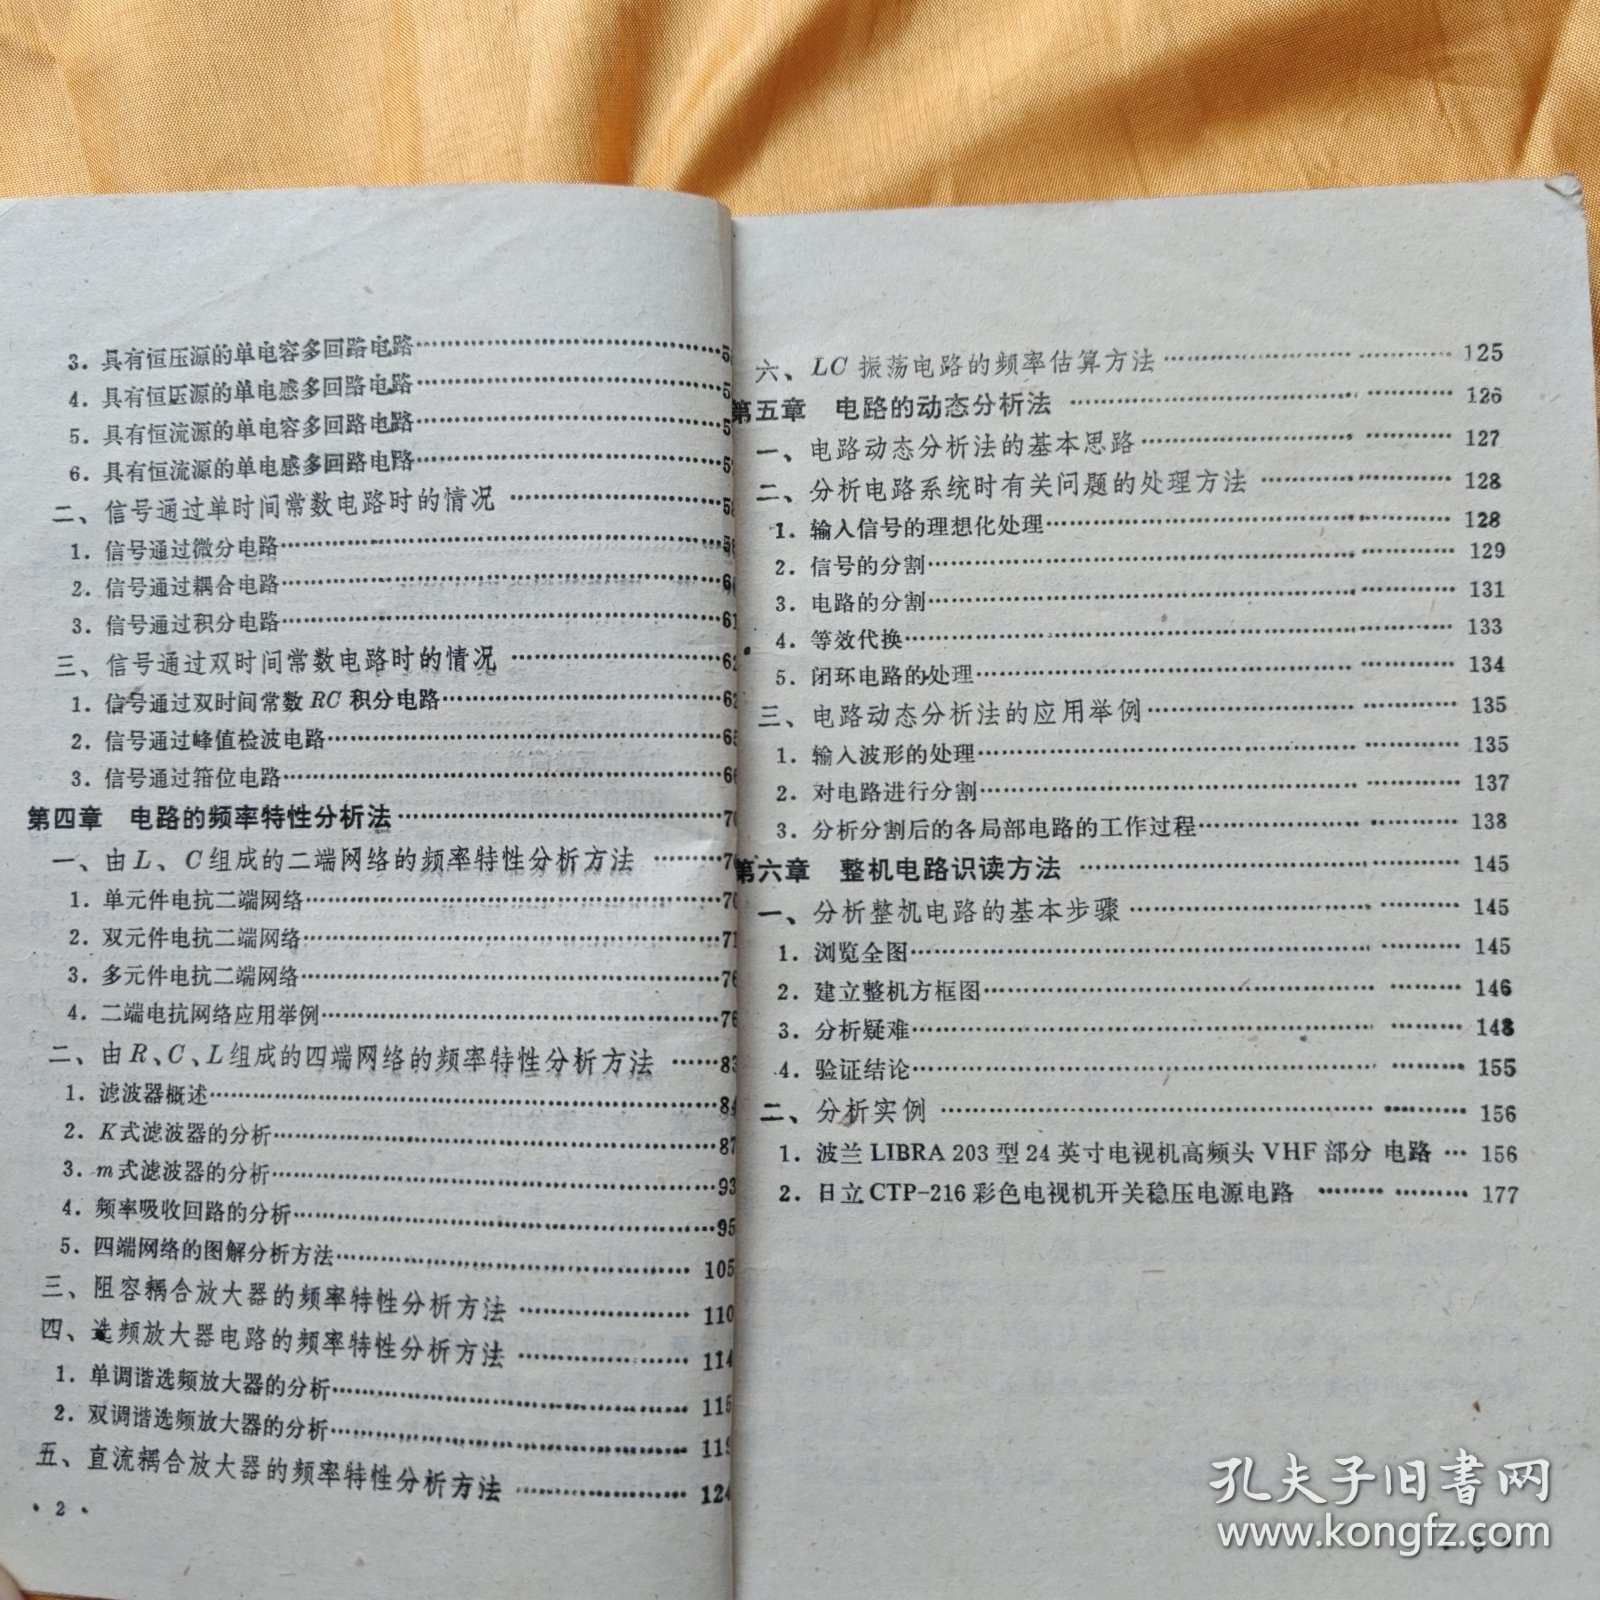 3. 具有恒压源的单电容多回路电路
4. 具有恒压源的单电感多回路电路
5. 具有恒流源的单电容多回路电路
6. 具有恒流源的单电感多回路电路
二、信号通过单时间常数电路时的情况
1. 信号通过微分电路
2. 信号通过耦合电路
3. 信号通过积分电路……61
三、信号通过双时间常数电路时的情况……62
1. 信号通过双时间常数RC积分电路……62
2. 信号通过峰值检波电路……65
3. 信号通过箝位电路……66
第四章 电路的频率特性分析法……70
一、由L、C组成的二端网络的频率特性分析方法……70
1. 单元件电抗二端网络……70
2. 双元件电抗二端网络……71
3. 多元件电抗二端网络……76
4. 二端电抗网络应用举例……76
二、由R、C、L组成的四端网络的频率特性分析方法……83
1. 滤波器概述……84
2. K式滤波器的分析……87
3. m式滤波器的分析……93
4. 频率吸收回路的分析……95
5. 四端网络的图解分析方法……105
三、阻容耦合放大器的频率特性分析方法……110
四、选频放大器电路的频率特性分析方法……114
1. 单调谐选频放大器的分析……115
2. 双调谐选频放大器的分析……119
五、直流耦合放大器的频率特性分析方法……124
• 2 •
六、LC振荡电路的频率估算方法……125
第五章 电路的动态分析法……126
一、电路动态分析法的基本思路……127
二、分析电路系统时有关问题的处理方法……128
1. 输入信号的理想化处理……128
2. 信号的分割……129
3. 电路的分割……131
4. 等效代换……133
5. 闭环电路的处理……134
三、电路动态分析法的应用举例……135
1. 输入波形的处理……135
2. 对电路进行分割……137
3. 分析分割后的各局部电路的工作过程……138
第六章 整机电路识读方法……145
一、分析整机电路的基本步骤……145
1. 浏览全图……145
2. 建立整机方框图……146
3. 分析疑难……148
4. 验证结论……155
二、分析实例……156
1. 波兰LIBRA 203型24英寸电视机高频头VHF部分电路…156
2. 日立CTP-216彩色电视机开关稳压电源电路……177
孔夫子旧書网
www.kongfz.com